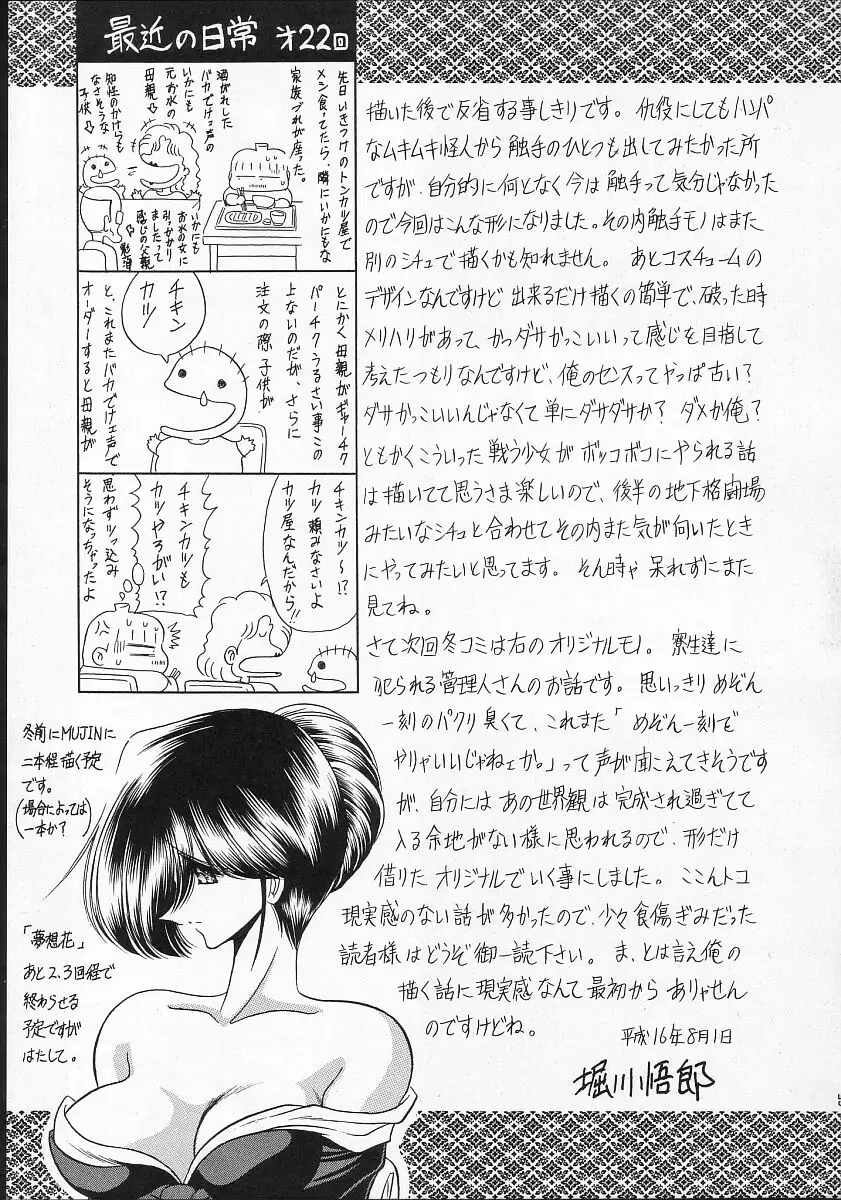 最近の日常 オ22回
先日いきつけのトンカツ屋で
メシ食ってたら、隣にいかにもな
家族づれが座った。
酒がれした
バカでけェ声の
いかにも
元お水の
母親⇩
知性のかけらも
なさそうな
子供⇩
いかにも
お水の女に
引っかかり
ましたって
感じの父親
とにかく母親がギャーチク
パーチクうるさい事この
上ないのだが、さらに
注文の際、子供が
チキン
カツ
と、これまたバカでけェ声で
オーダーすると母親が
チキンカツ〜!?
カツ頼みなさいよ
カツ屋なんだから!!
チキンカツも
カツやろがい!?
思わずツッ込み
そうになっちゃったよ
描いた後で反省する事しきりです。仇役にしてもハンパ
なムキムキ怪人から触手のひとつも出してみたかった所
ですが、自分的に何となく今は触手って気分じゃなかった
ので今回はこんな形になりました。その内触手モノはまた
別のシチュで描くかも知れません。あとコスチュームの
デザインなんですけど出来るだけ描くの簡単で、破った時
メリハリがあって、かっダサかっこいいって感じを目指して
考えたつもりなんですけど、俺のセンスってやっぱ古い?
ダサかっこいいんじゃなくて単にダサダサか? ダメか俺?
ともかくこういった戦う少女がボッコボコにやられる話
は描いてて思うさま楽しいので、後半の地下格闘場
みたいなシチュと合わせてその内また気が向いたとき
にやってみたいと思ってます。そん時ゃ呆れずにまた
見てね。
さて次回冬コミは右のオリジナルモノ。寮生達に
犯られる管理人さんのお話です。思いっきりめぞん
一刻のパクリ臭くて、これまた「めぞん一刻で
やりゃいいじゃねェか。」って声が聞こえてきそうです
が、自分にはあの世界観は完成され過ぎてて
入る余地がない様に思われるので、形だけ
借りたオリジナルでいく事にしました。ここんトコ
現実感のない話が多かったので、少々食傷ぎみだった
読者様はどうぞ御一読下さい。ま、とは言え俺の
描く話に現実感なんて最初からありゃせん
のですけどね。
平成16年8月1日
堀川悟郎
冬前にMUJINに
二本程描く予定
です。
(場合によっては
一本か?)
「夢想花」
あと2、3回程で
終わらせる
予定ですが
はたして。